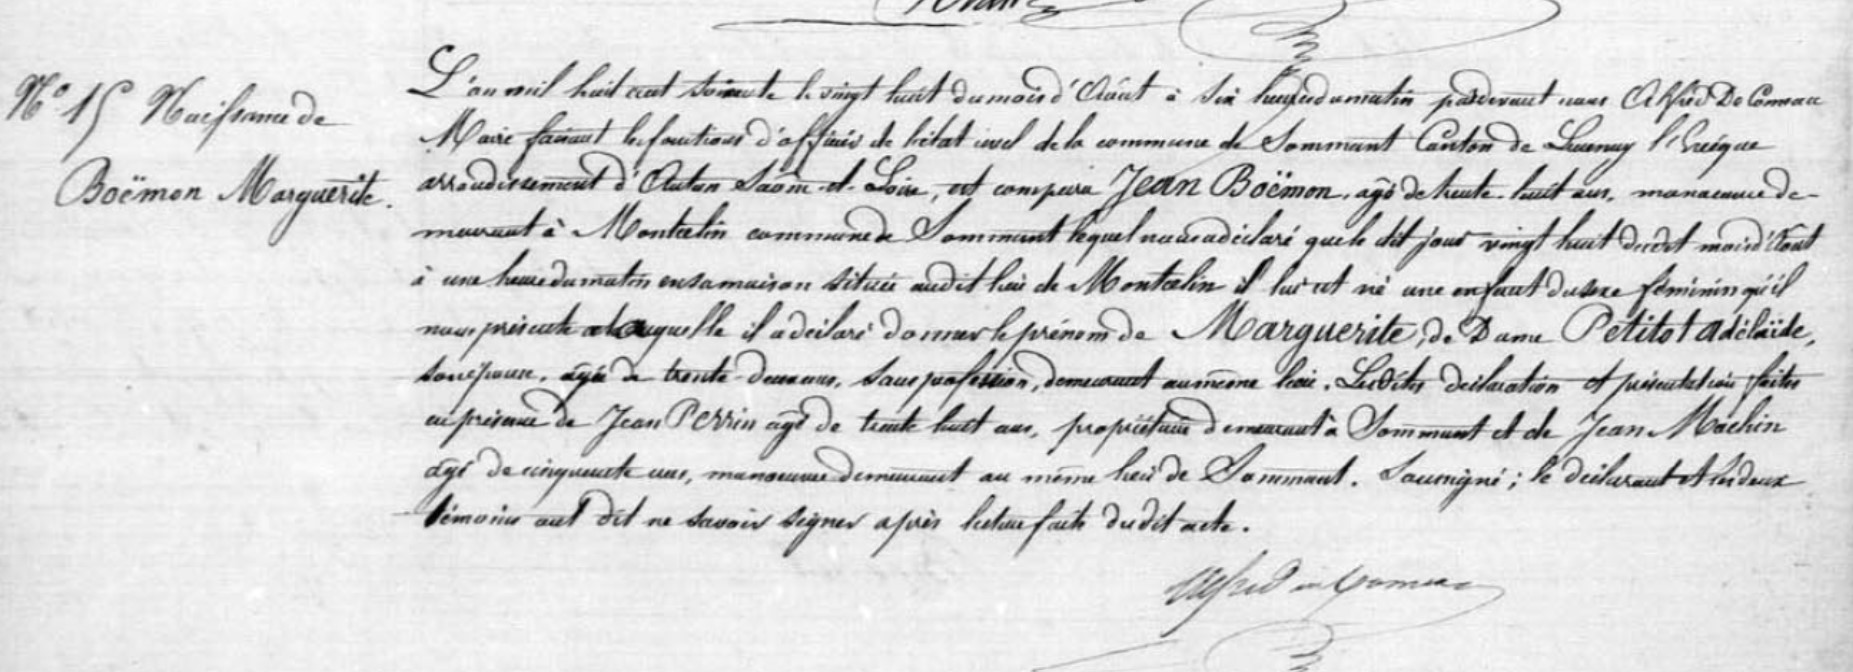 N° 15 Naissance de
Boëmon Marguerite.
L'an mil huit cent soixante le vingt huit du mois d'Août à six heures du matin pardevant nous Alfred De Comeau
Maire faisant les fonctions d'officier de l'état civil de la commune de Sommant Canton de Lucenay l'Evêque
arrondissement d'Autun Saône-et-Loire, est comparu Jean Boëmon, agé de trente-huit ans, manoeuvre de-
meurant à Montcelin commune de Sommant lequel nous a déclaré que le dit jour vingt huit dudit mois d'Août
à une heure du matin en sa maison située audit lieu de Montcelin il lui est né une enfant du sexe féminin qu'il
nous présente et à laquelle il a déclaré donner le prénom de Marguerite, de Dame Petitot Adélaïde,
son épouse, agée de trente-deux ans, sans profession, demeurant au même lieu. Les dites déclaration et présentation faites
en présence de Jean Perrin agé de trente huit ans, propriétaire demeurant à Sommant et de Jean Machin
agé de cinquante ans, manoeuvre demeurant au même lieu de Sommant. Soussigné; le déclarant et les deux
témoins ont dit ne savoir signer après lecture faite du dit acte.
Alfred de Comeau